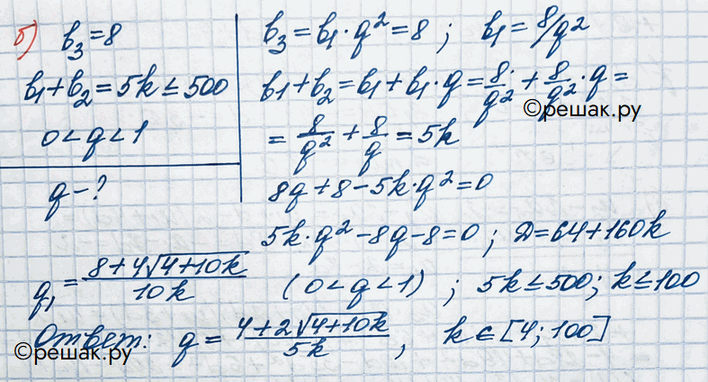 б) b₃=8
b₁+b₂=5k≤500
0<q<1
q-?
b₃=b₁·q²=8; b₁=8/q²
b₁+b₂=b₁+b₁·q=8/q²+8/q²·q=
©решак.ру
=8/q²+8/q=5k
8q+8-5k·q²=0
5k·q²-8q-8=0; D=64+160k
q₁=(8+4√(4+10k))/10k (0<q<1); 5k≤500; k≤100
Ответ: q=(4+2√(4+10k))/5k, k∈[4;100]
©решак.ру